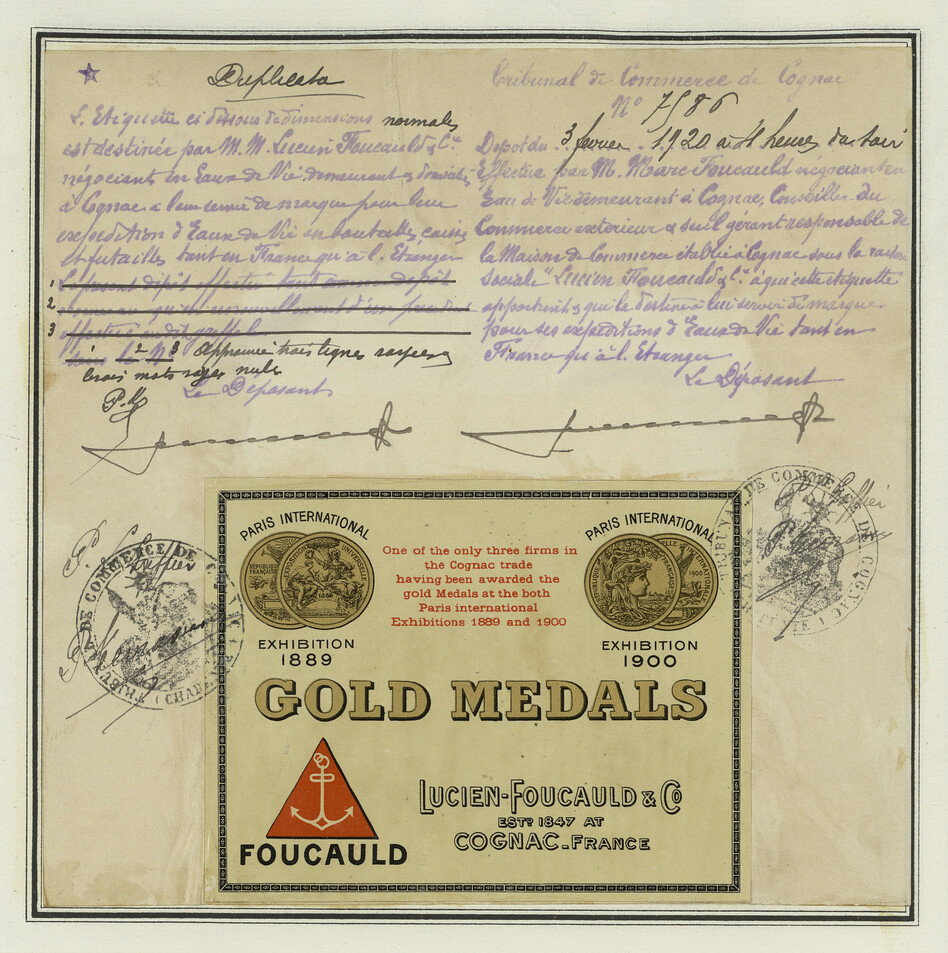 Duplicata
L'Etiquette ci dessous de dimensions normales
est destinée par M.M. Lucien Foucauld & Cie
négociants en Eaux de Vie demeurant & domiciliés
à Cognac à leur servir de marque pour leur
expédition d'Eaux de Vie en bouteilles, caisses
et futailles tant en France qu'à l'Etranger
1 Le présent dépôt effectué tant comme dépôt
2 nouveau qu'en renouvellement d'un précédent
3 effectué au dit greffe le
1 2 3 Approuvé trois lignes rayées
trois mots rayés nuls
Le Déposant
Tribunal de Commerce de Cognac
No 7586
Dépôt du 3 février 1920 à 4 heures du soir
Effectué par M. Marc Foucauld négociant en
Eau de Vie demeurant à Cognac, Conseiller du
Commerce extérieur & seul gérant responsable de
la Maison de Commerce établie à Cognac sous la raison
sociale "Lucien Foucauld & Cie" à qui cette étiquette
appartient & qui la destine à lui servir de marque
pour ses expéditions d'Eaux de Vie tant en
France qu'à l'Etranger
Le Déposant
TRIBUNAL DE COMMERCE DE COGNAC
TRIBUNAL DE COMMERCE DE COGNAC
PARIS INTERNATIONAL
EXHIBITION
1889
One of the only three firms in
the Cognac trade
having been awarded the
gold Medals at the both
Paris international
Exhibitions 1889 and 1900
PARIS INTERNATIONAL
EXHIBITION
1900
GOLD MEDALS
FOUCAULD
LUCIEN-FOUCAULD & Co
ESTD 1847 AT
COGNAC-FRANCE